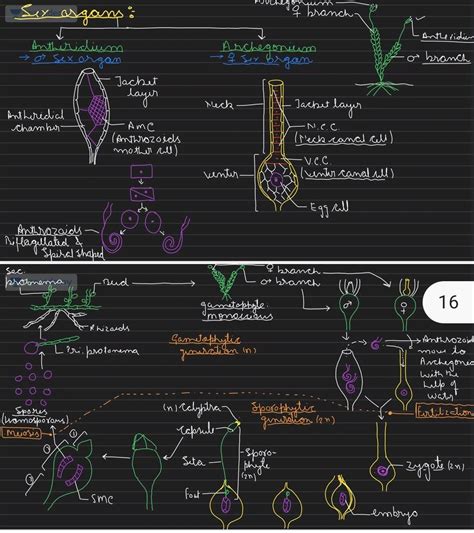 Sex organs:
Archegonium
♀ branch
Antheridium
→ ♂ Sex organ
Archegonium
→ ♀ Sex organ
Antheridium
♂ branch
Jacket
layer
Antheridial
chamber
AMC
(Antherozoids
mother cell)
Neck
Jacket layer
N.C.C.
(Neck canal cell)
Venter
V.C.C.
(Venter canal cell)
Egg cell
Antherozoids
Biflagellated &
Spiral shaped
Sec.
protonema
Bud
♀ branch
♂ branch
gametophyte
monoecious
♂
♀
16
Rhizoids
Pri. protonema
Gametophytic
generation (n)
Antherozoid
move to
Archegonia
with the
help of
water
Spores
(Homosporous)
Meiosis
(n) Calyptra
Sporophytic
generation (2n)
Fertilization
Capsule
Seta
Sporo-
phyte
(2n)
Foot
SMC
Zygote (2n)
embryo